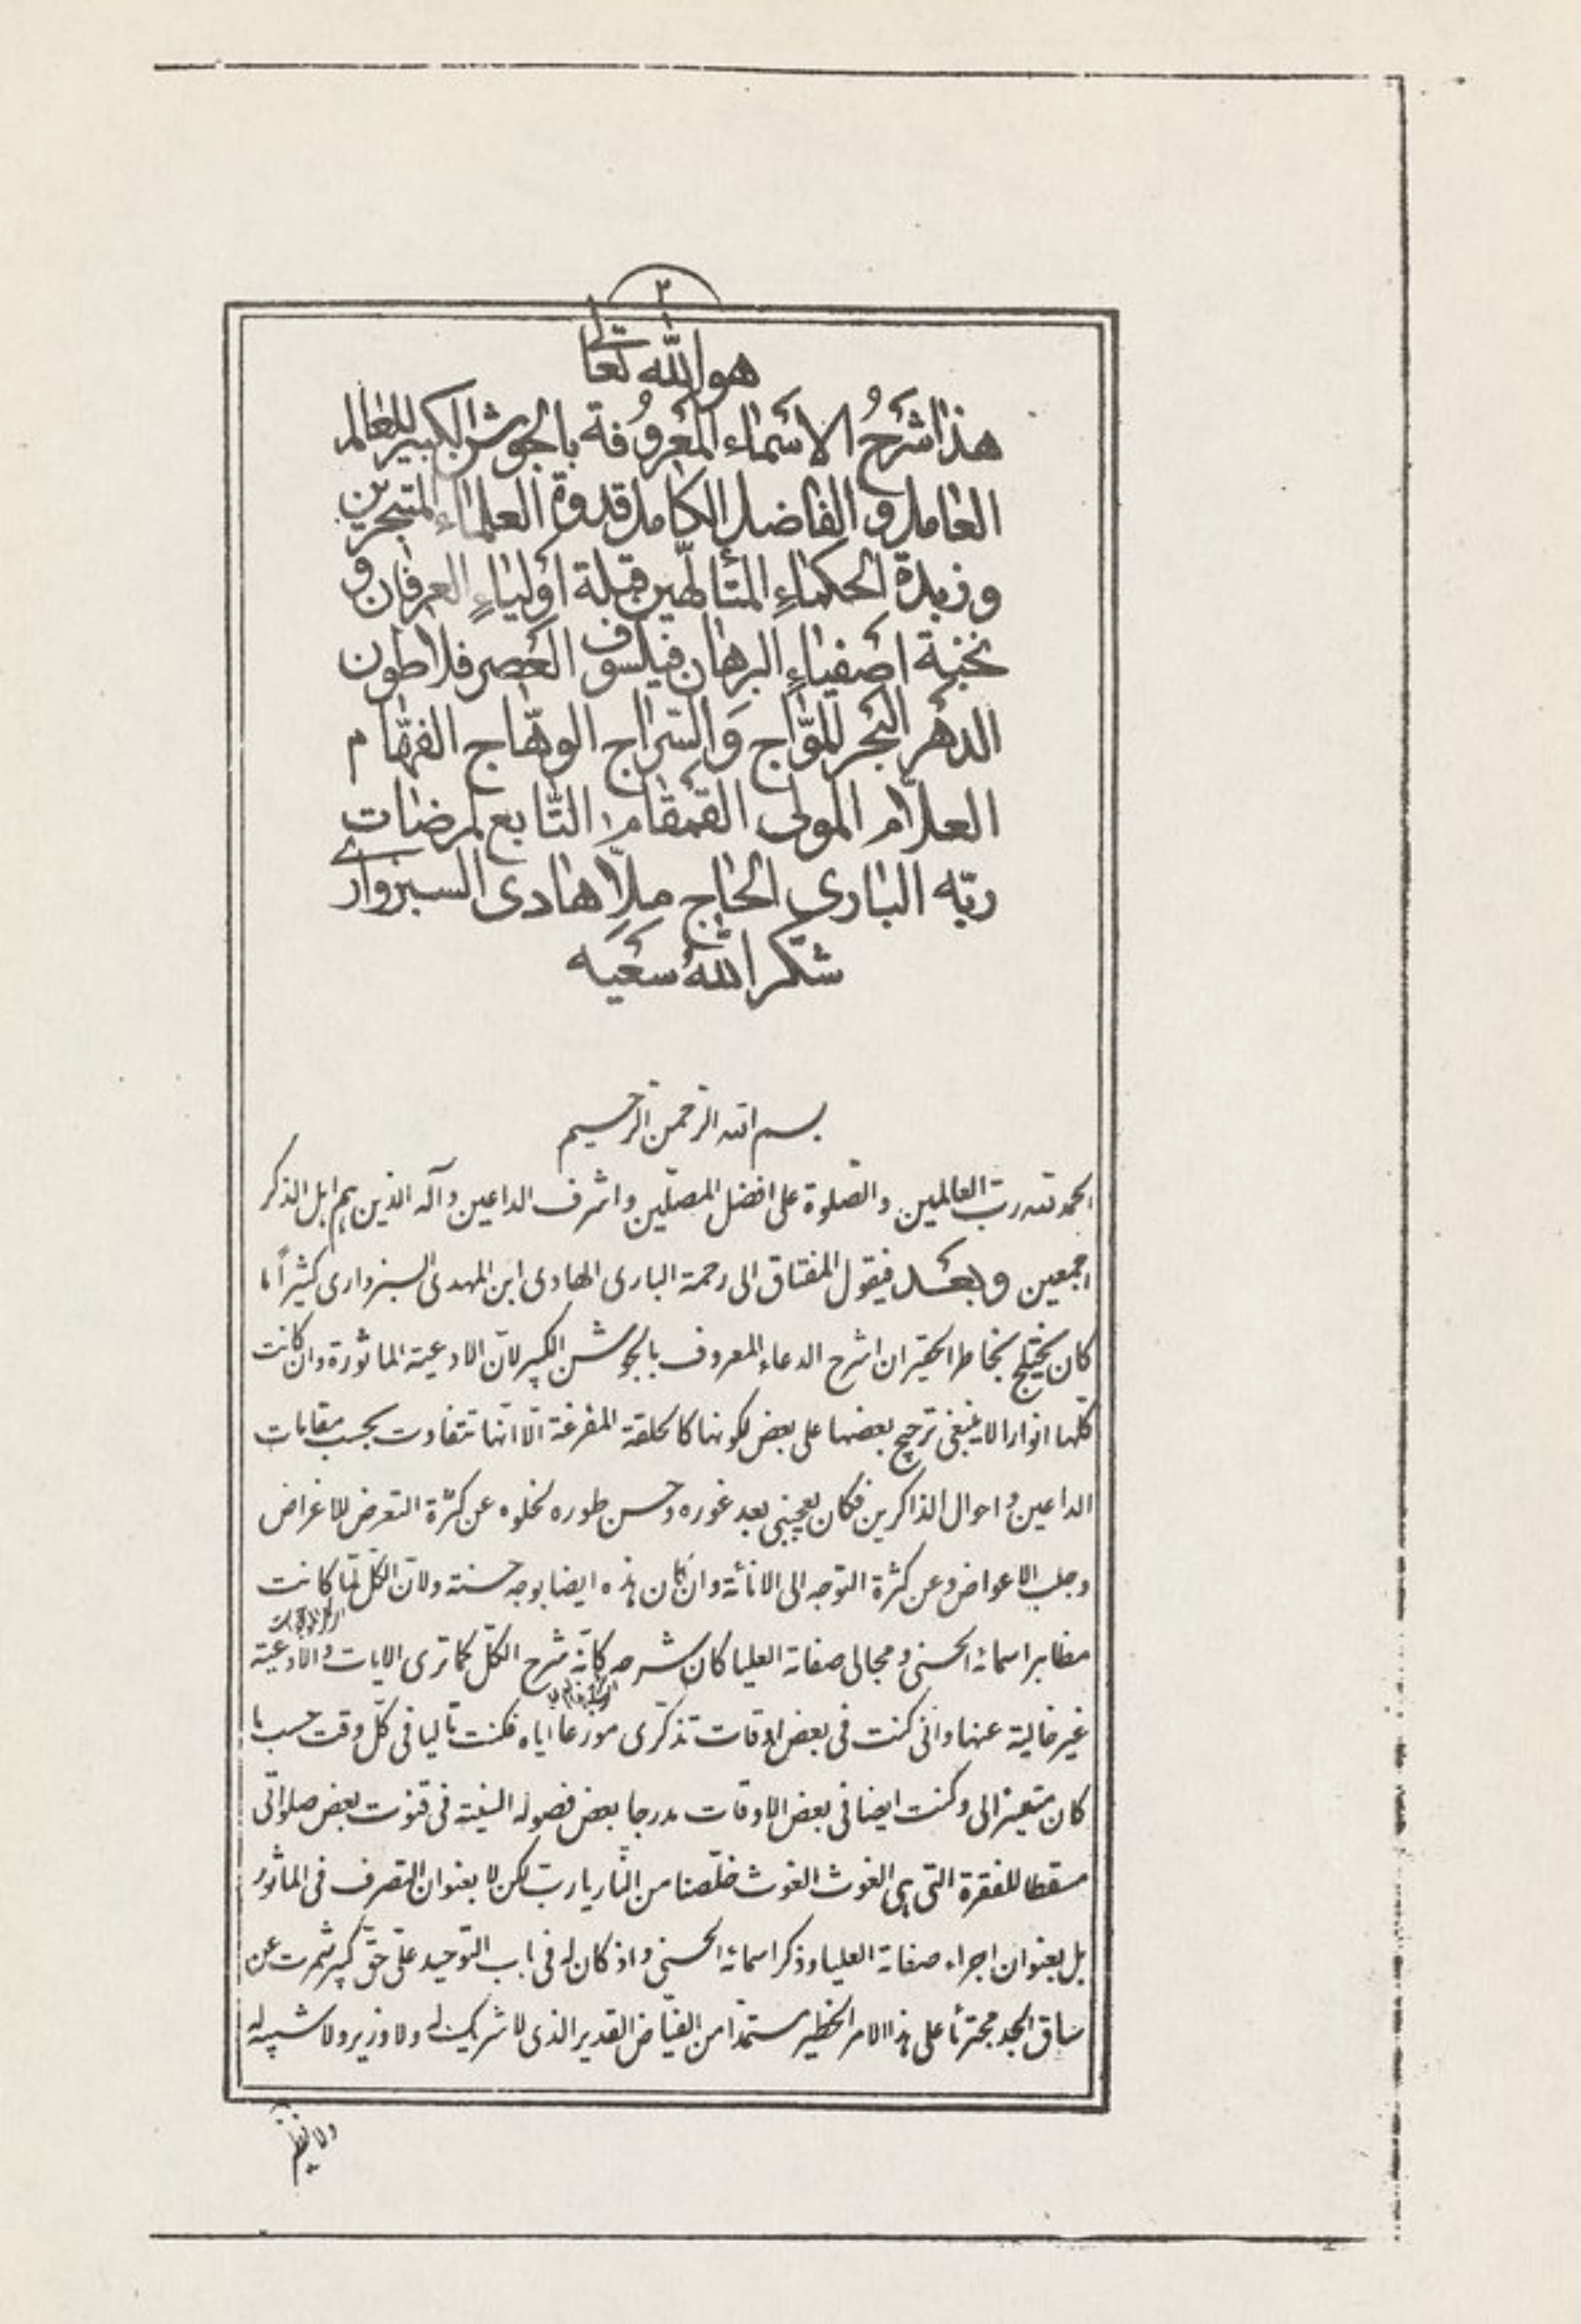 ٢
هو الله تعالى
هذا شَرحُ الاسَماء المَعرُوفة بالجوشن الكبير للعالم
العامل و الفاضل الكامل قدوة العلماءِ المتبحرين
و زبدة الحكماءِ المتألّهين قبلة اَولياءِ العرفان و
نخبة اصَفياءِ البرهان فيلسوف العَصر فلاطون
الدهَر البَحر الموّاج وَ السّراج الوهّاج الفهّام
العلّام المولى القمَقام التّابع لمرضات
ربّه البارى الحاج ملّا هادى السبزوارى
شكر اللهُ سَعَيَه
بسم الله الرّحمن الرّحيم
الحمد لله ربّ العالمين والصّلوة على افضل المصلّين واشرف الداعين وآله الذين هم اهل الذكر
اجمعين وبعَد فيقول المفتاق الى رحمة البارى الهادى ابن المهدى السبزوارى كثيراً ما
كان يختلج بخاطر الحقير ان اشرح الدعاء المعروف بالجوشن الكبير لانّ الادعية الماثورة وان كانت
كلّها انوارا لا ينبغى ترجيح بعضها على بعض لكونها كالحلقة المفرغة الّا انّها تتفاوت بحسب مقامات
الداعين واحوال الذاكرين فكان يعجبنى بعد غوره وحسن طوره لخلوه عن كثرة التعرض للاغراض
وجلب الاعواض وعن كثرة التوجه الى الانائة وان كان هذه ايضا بوجه حسنة ولانّ الكلّ لمّا كانت
مظاهر اسمائه الحسنى ومجالى صفاته العليا كان شرحه كانّه شرح الكلّ كما ترى الايات والادعية
غير خالية عنها وانى كنت فى بعض اوقات تذكّرى موزعا اياه فكنت تاليا فى كلّ وقت حسب ما
كان متيسرا لى وكنت ايضا فى بعض الاوقات مدرجا بعض فصوله السنية فى قنوت بعض صلواتى
مسقطا للفقرة التى هى الغوث الغوث خلّصنا من النّار يا ربّ لكن لا بعنوان التصرف فى الماثور
بل بعنوان اجراء صفاته العليا وذكر اسمائه الحسنى واذ كان له فى باب التوحيد علىّ حقّ كبير شمرت عن
ساق الجد مجترئا على هذا الامر الخطير مستمدّا من الفيّاض القدير الذى لا شريك له ولا وزير ولا شبيه له
ولا نظير